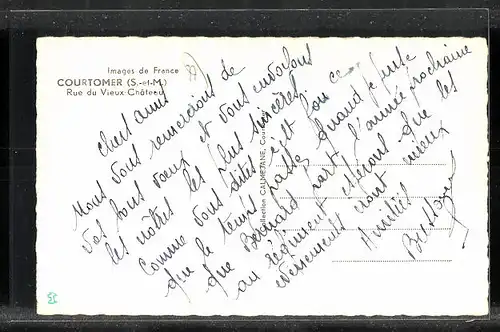 Images de France
COURTOMER (S.-et-M.)
Rue du Vieux Château
Chers amis
Nous vous remercions de
vos bons vœux et vous envoyons
les nôtres les plus sincères.
Comme vous dites c'est fou ce
que le temps passe quand je pense
que Bernard part l'année prochaine
au régiment espérons que les
événements iront mieux
Amitiés
Collection CALMEJANE, Courtomer